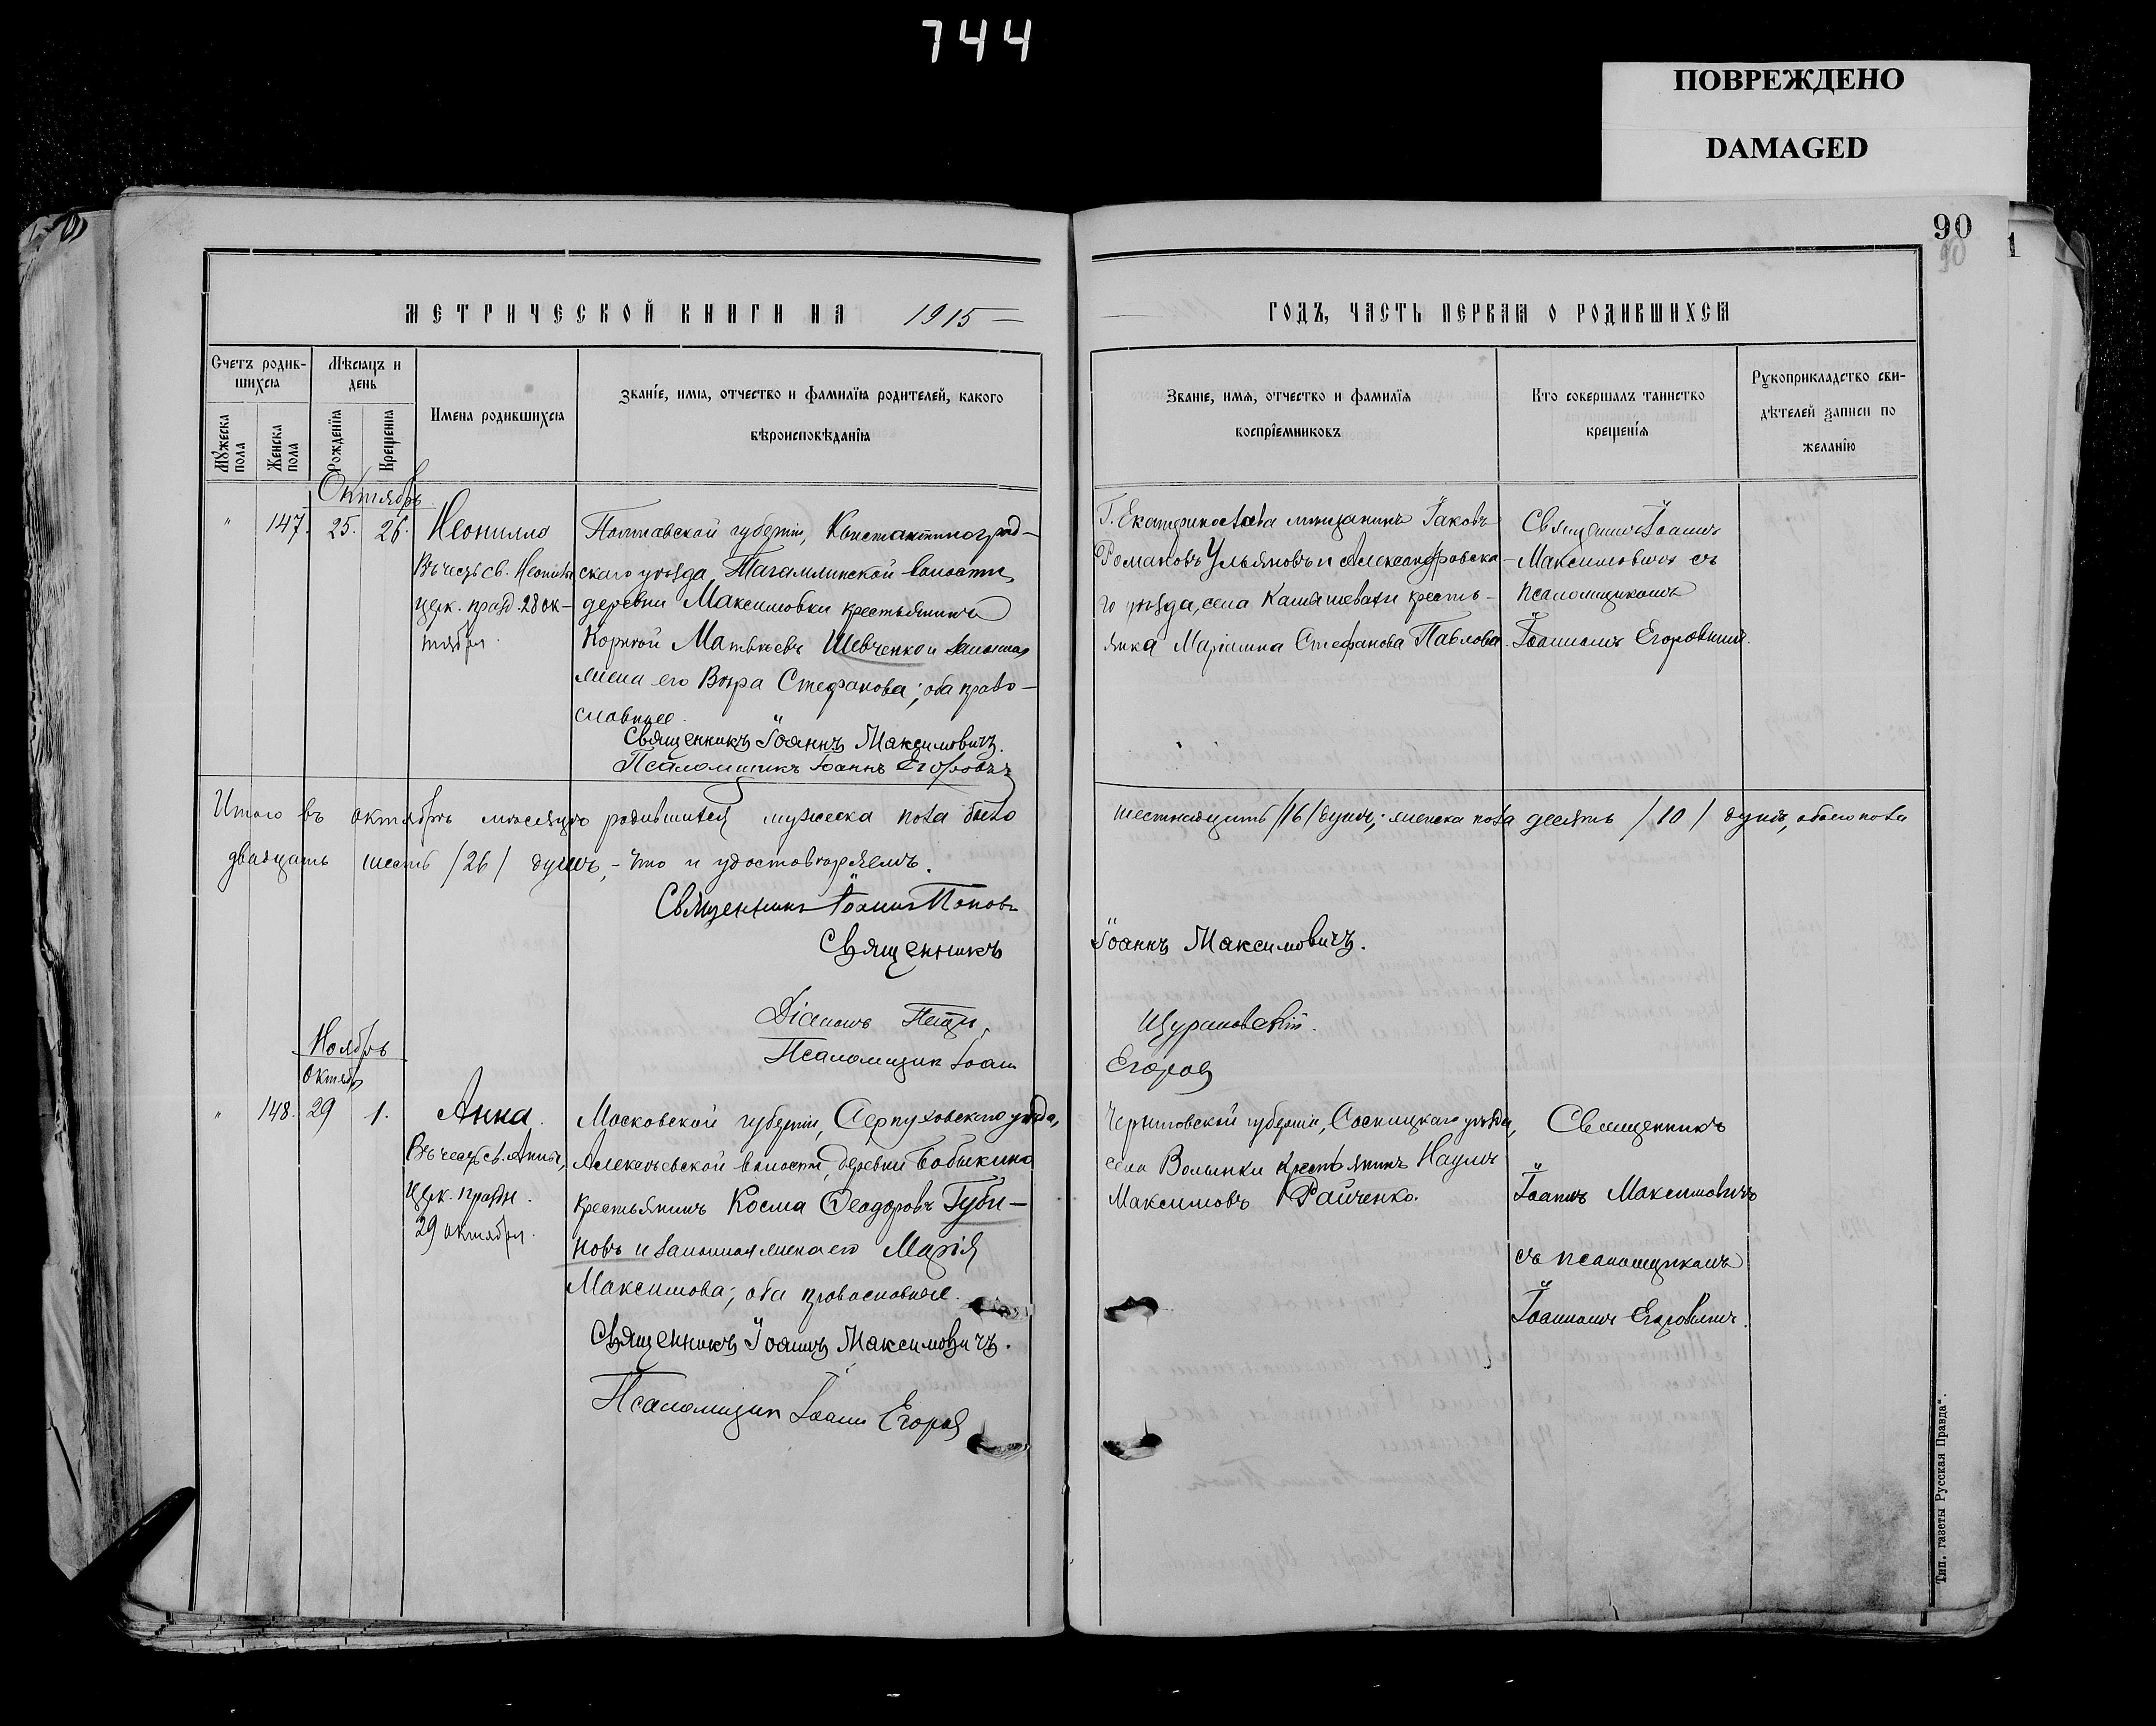 744
ПОВРЕЖДЕНО
DAMAGED
90
90
1
МЕТРИЧЕСКОЙ КНИГИ НА 1915
ГОДЪ, ЧАСТЬ ПЕРВАЯ О РОДИВШИХСЯ
Счетъ родив-
шихся
Мѣсяцъ и
день
Мужеска пола
Женска пола
Рожденія
Крещенія
Имена родившихся
Званіе, имя, отчество и фамилія родителей, какого
вѣроисповѣданія
Званіе, имя, отчество и фамилія
воспріемниковъ
Кто совершалъ таинство
крещенія
Рукоприкладство сви-
дѣтелей записи по
желанію
Октябрь
" 147. 25. 26.
Неонилла
Въ честь св. Неонилы
церк. празд. 28 ок-
тября.
Полтавской губерніи, Константиноград-
скаго уѣзда, Тагамлинской волости,
деревни Максимовки крестьянинъ
Корнѣй Матвѣевъ Шевченко и законная
жена его Вѣра Стефанова; оба право-
славные.
Священникъ Іоаннъ Максимовичъ.
Псаломщикъ Іоаннъ Егоровъ
Г. Екатеринослава мѣщанинъ Іаковъ
Романовъ Ульяновъ и Александровска-
го уѣзда, села Камышевахи кресть-
янка Маріамна Стефанова Павлова.
Священникъ Іоаннъ
Максимовичъ съ
псаломщикомъ
Іоанномъ Егоровымъ.
Итого въ октябрѣ мѣсяцѣ родившихся мужеска пола было
шестнадцать /16/ душъ; женска пола десять /10/ душъ, обоего пола
двадцать шесть /26/ душъ, - что и удостовѣряемъ.
Священникъ Іоаннъ Поповъ
Священникъ Іоаннъ Максимовичъ.
Діаконъ Петръ Щурановскій.
Псаломщик Іоан Егоров
Ноябрь
Октябрь
" 148. 29 1.
Анна.
Въ честь св. Анны,
церк. праздн.
29 октября.
Московской губерніи, Серпуховскаго уѣзда,
Алексѣевской волости, деревни Бабыкино
крестьянинъ Косма Ѳеодоровъ Губи-
новъ и законная жена его Марія
Максимова; оба православные.
Священникъ Іоаннъ Максимовичъ.
Псаломщик Іоанн Егоров
Черниговской губерніи, Сосницкаго уѣзда,
села Волынки крестьянинъ Наумъ
Максимовъ Райченко.
Священникъ
Іоаннъ Максимовичъ
съ псаломщикомъ
Іоанномъ Егоровымъ.
Тип. газеты „Русская Правда“.